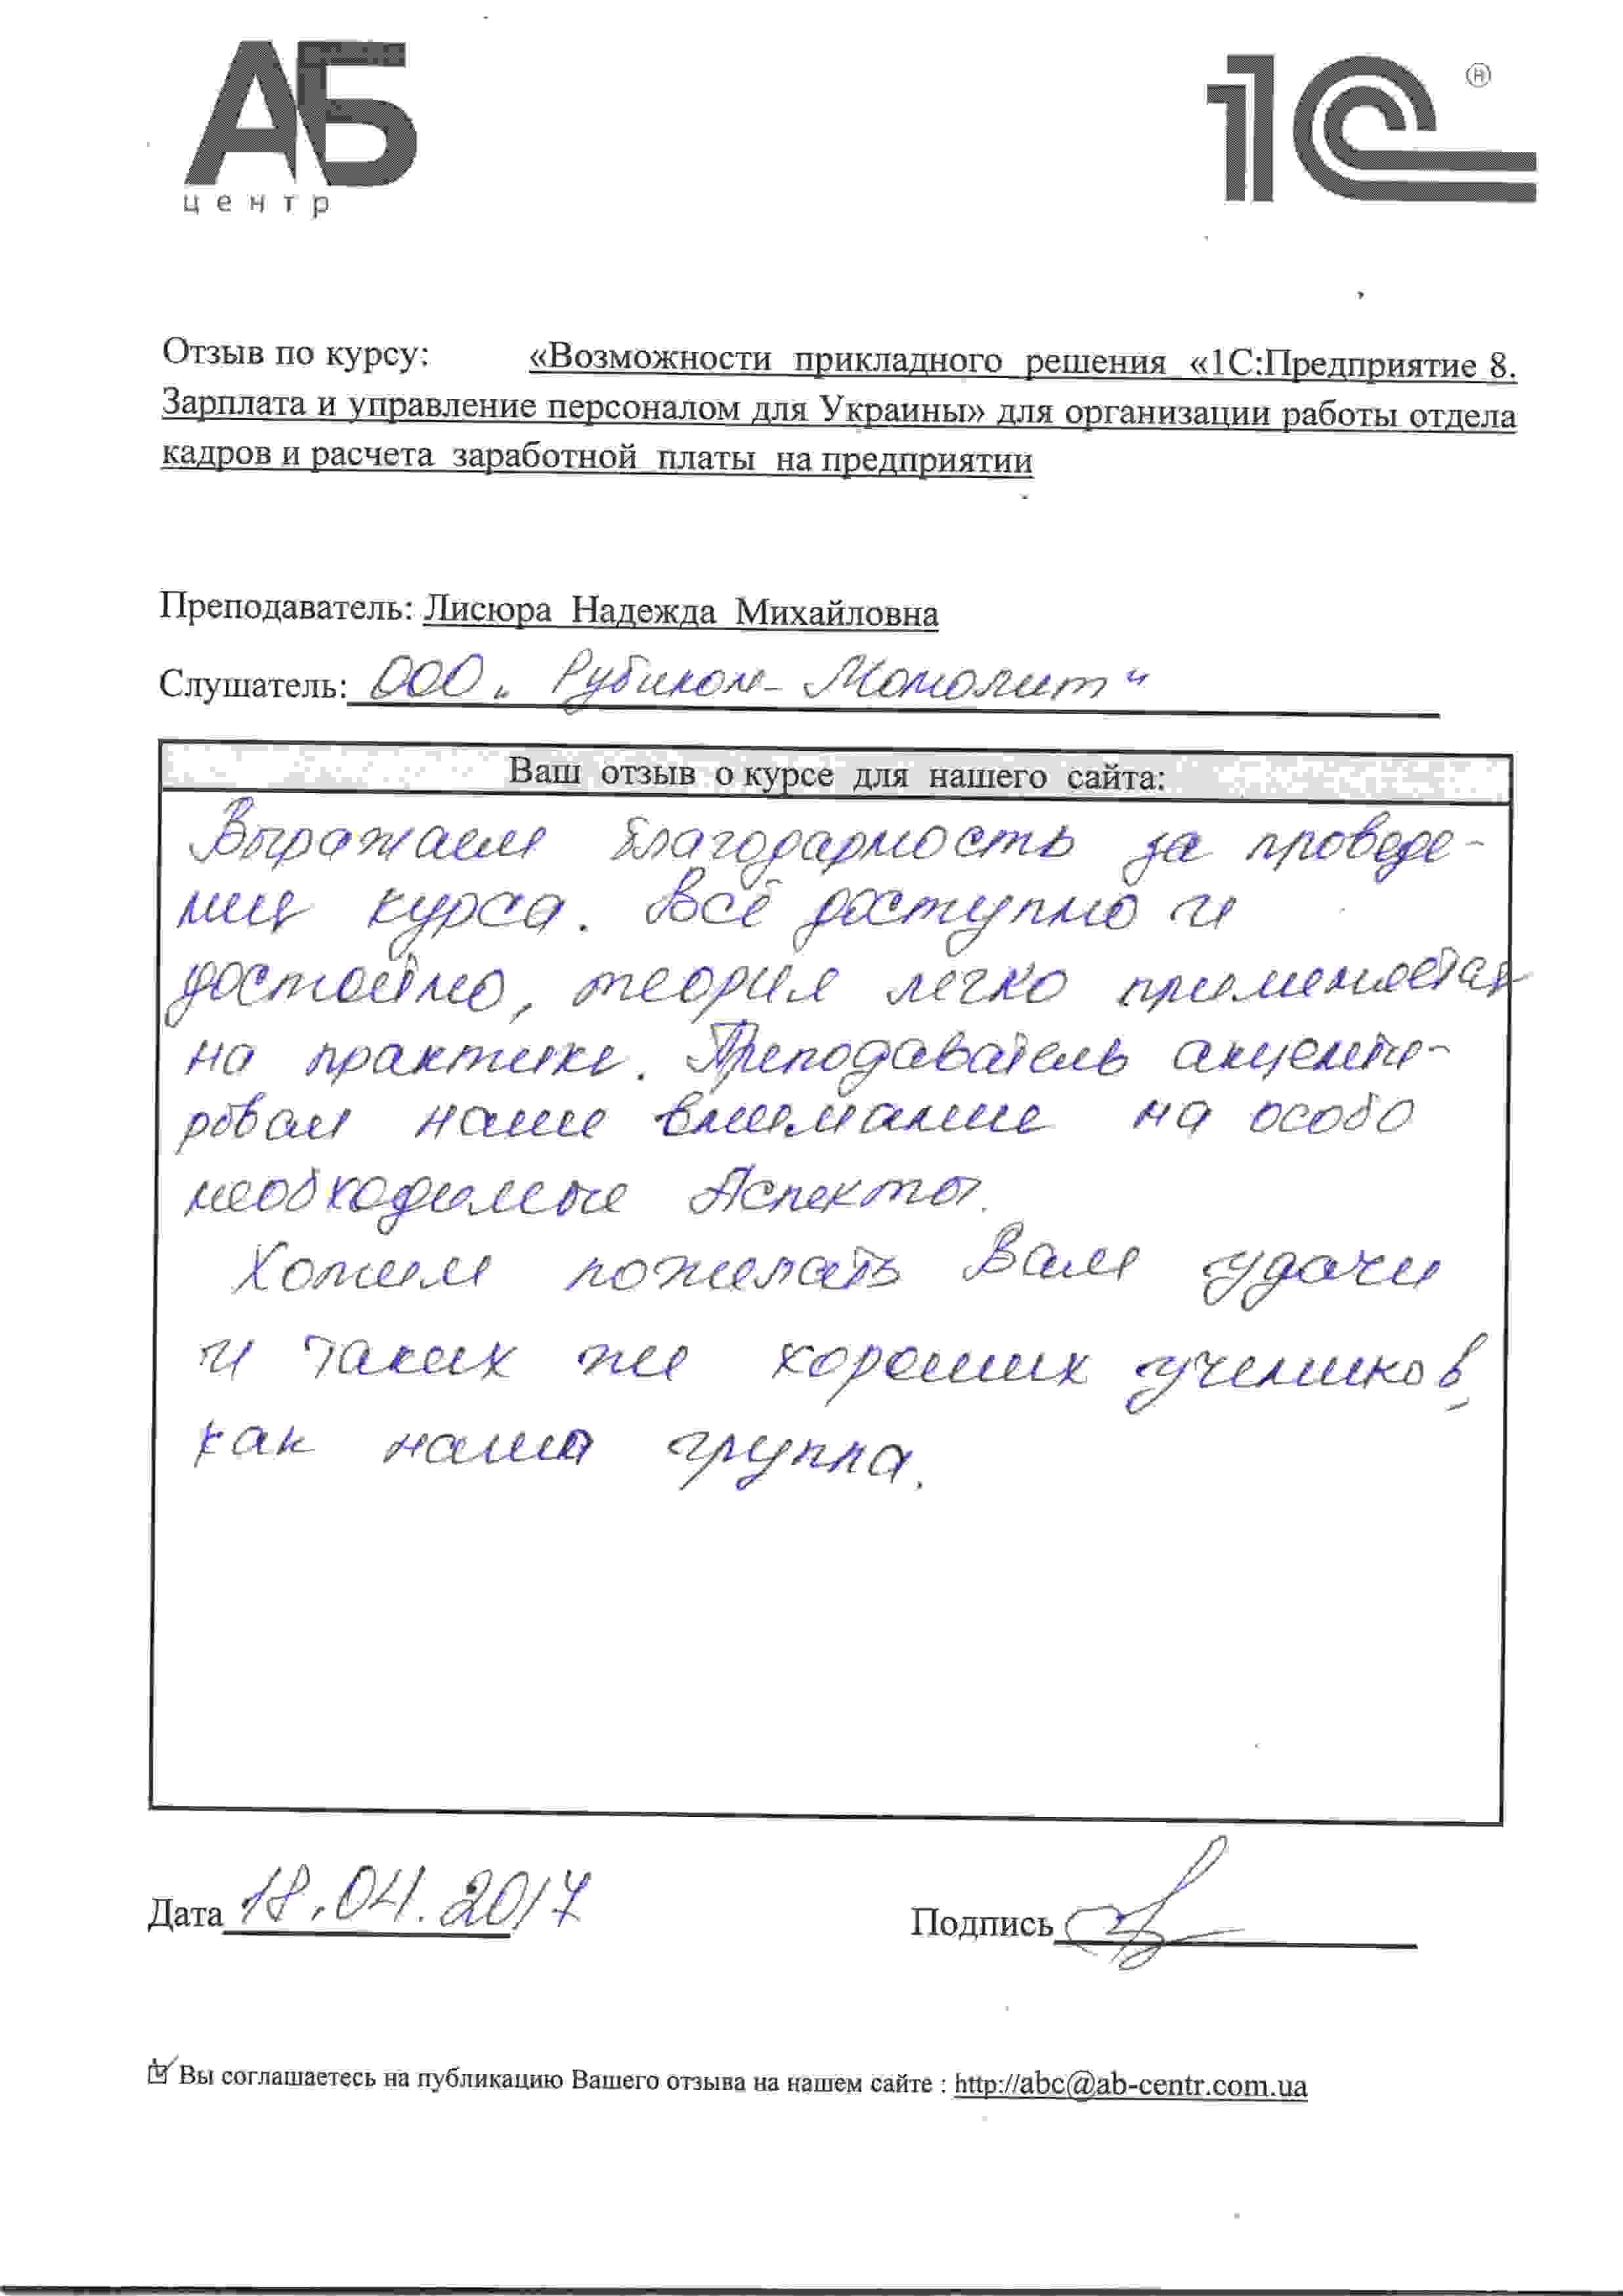 АБ
центр
1С ®
Отзыв по курсу: «Возможности прикладного решения «1С:Предприятие 8.
Зарплата и управление персоналом для Украины» для организации работы отдела
кадров и расчета заработной платы на предприятии
Преподаватель: Лисюра Надежда Михайловна
Слушатель: ООО „ Рубикон - Монолит "
Ваш отзыв о курсе для нашего сайта:
Выражаем благодарность за проведе-
ние курса. Всё доступно и
достойно, теория легко применяется
на практике. Преподаватель акценти-
ровал наше внимание на особо
необходимые Аспекты.
Хотим пожелать Вам удачи
и таких же хороших учеников,
как наша группа.
Дата 18.04.2017 Подпись
Вы соглашаетесь на публикацию Вашего отзыва на нашем сайте : http://abc@ab-centr.com.ua